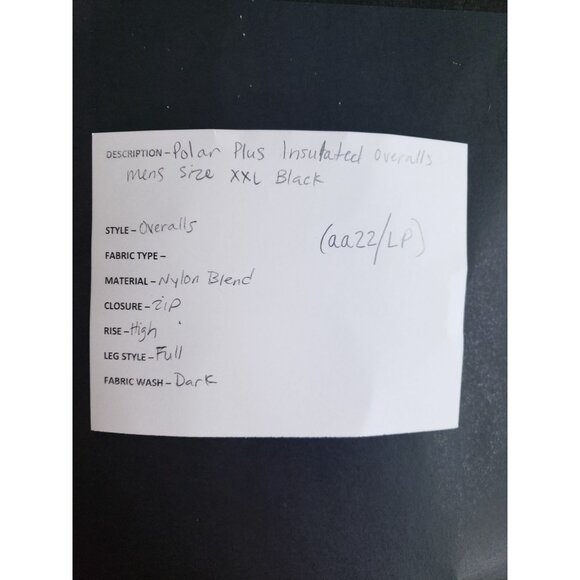 DESCRIPTION - Polar Plus Insulated Overalls
mens size XXL Black
STYLE - Overalls
(aa22/LP)
FABRIC TYPE -
MATERIAL - Nylon Blend
CLOSURE - zip
RISE - High
LEG STYLE - Full
FABRIC WASH - Dark